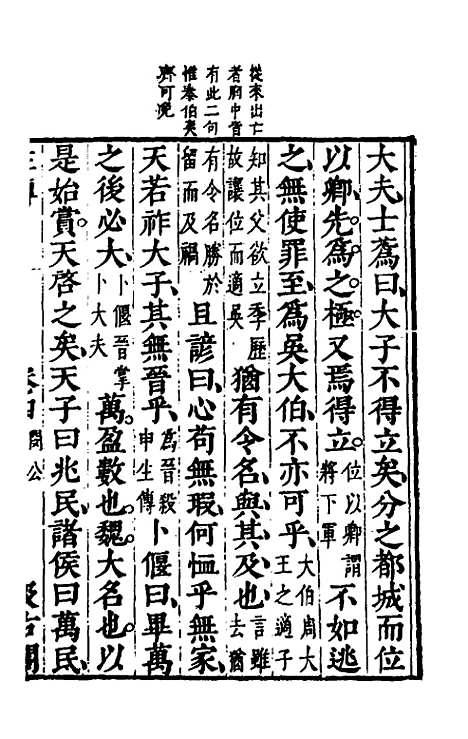 從來出亡
者胸中皆
有此二句
惟泰伯夷
齊可免
大夫士蒍曰大子不得立矣分之都城而位
以卿先爲之極又焉得立位以卿謂將下軍不如逃
之無使罪至爲吳大伯不亦可乎大伯周大王之適子
知其父欲立季歷故讓位而適吳猶有令名與其及也言雖去猶
有令名勝於留而及禍且諺曰心苟無瑕何恤乎無家
天若祚大子其無晉乎爲晉殺申生傳卜偃曰畢萬
之後必大卜偃晉掌卜大夫萬盈數也魏大名也以
是始賞天啓之矣天子曰兆民諸侯曰萬民
閔公